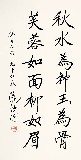 秋水為神玉為骨
芙蓉如面柳如眉